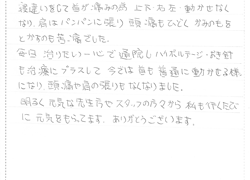 寝違いをして首が痛みの為 上下・左右・動かせなく
なり、肩はパンパンに張り 頭痛もひどく かみのもを
とかすのも苦痛でした。
毎日 治りたい一心で通院し ハイボルテージ・おき針
も治療にプラスして 今では首も普通に動かせる様
になり 頭痛や肩の張りもなくなりました。
明るく 元気な先生方や スタッフの方々から 私も行くたび
に元気をもらってます。 ありがとうございます。